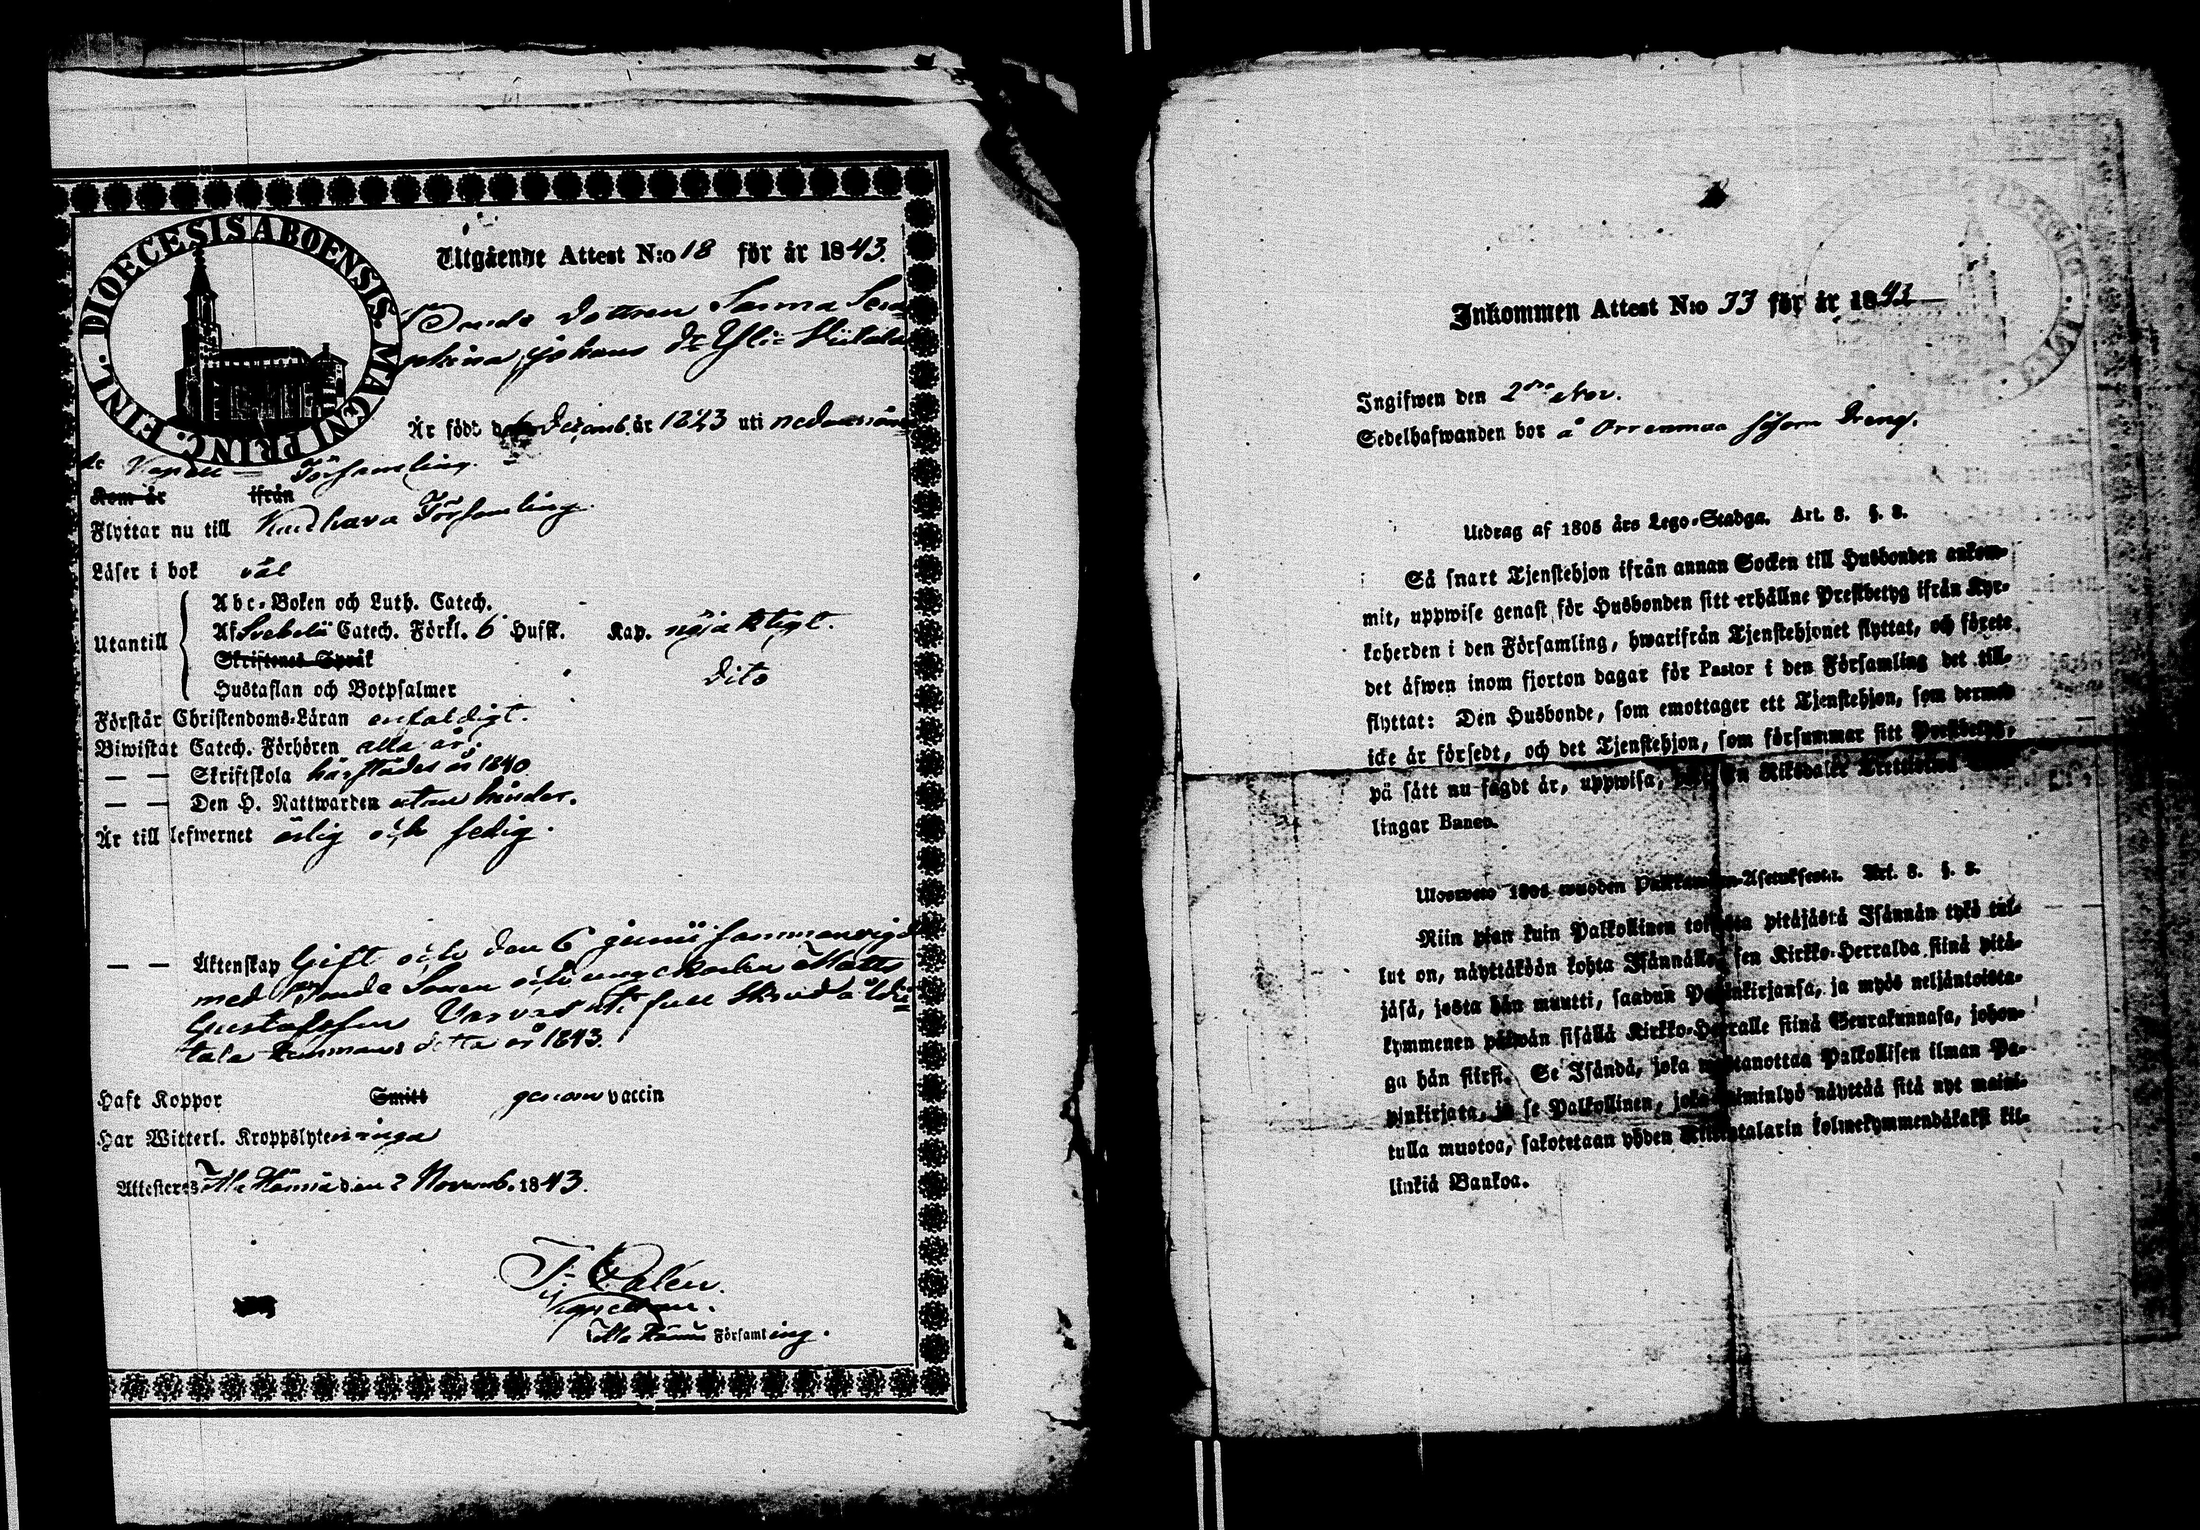 DIOECESIS ABOENSIS. MAGNI PRINC. FINL.
Utgående Attest N:o 18 för år 1843.
Bonde dottren Sanna Sera
phina Johans dr Yli
Är född den Dezemb. år 1823 uti nedannämn
de Kapell Församling.
Kom år ifrån
Flyttar nu till Församling.
Läser i bok väl
Utantill
Abc-Boken och Luth. Catech.
Af Svebelii Catech. Förkl. 6 Hufst. Kap. nöjaktigt.
Skriftenes Språk
Hustaflan och Botpsalmer dito
Förstår Christendoms-Läran enfaldigt.
Biwistat Catech. Förhören alla år.
— — Skriftskola härstädes år 1840
— — Den H. Nattwarden utan hinder.
Är till lefwernet ärlig och sedig.
— — Äktenskap Gift och den 6 junii sammanvigd
med Bonde Sonen och ungekarlen Matts
Gustafsson
detta år 1843.
Haft Koppor Smitt genom vaccin
Har Witterl. Kroppslyten inga
Attesteras den 2 Novemb. 1843.
Församling.
Inkommen Attest N:o 33 för år 1843
Ingifwen den 2dra Nov.
Sedelhafwanden bor å Orrenmaa såsom Dreng.
Utdrag af 1805 års Lego-Stadga. Art. 8. §. 8.
Så snart Tjenstehjon ifrån annan Socken till Husbonden ankom-
mit, uppwise genast för Husbonden sitt erhållne Prestbetyg ifrån Kyr-
koherden i den Församling, hwarifrån Tjenstehjonet flyttat, och förete
det äfwen inom fjorton dagar för Pastor i den Församling det till-
flyttat: Den Husbonde, som emottager ett Tjenstehjon, som dermed
icke är försedt, och det Tjenstehjon, som försummar sitt Prestbetyg,
på sätt nu sagdt är, uppwisa, Riksdaler
lingar Banco.
Ulosweto 1805 wuoden Palkkawäen-Asetuksesta. Art. 8. §. 8.
Niin pian kuin Palkollinen toisesta pitäjästä Isännän tykö tul-
lut on, näyttäköön kohta Isännälle, sen Kirkko-Herralda siinä pitä-
jäsä, josta hän muutti, saadun Papinkirjansa, ja myös neljäntoista-
kymmenen päiwän sisällä Kirkko-Herralle siinä Seurakunnasa, johon-
ga hän siirsi. Se Isändä, joka wastanottaa Palkollisen ilman Pa-
pinkirjata, ja se Palkollinen, joka laiminlyö näyttää sitä nyt maini-
tulla muotoa, sakotetaan yöden Riikintalarin kolmekymmendäkaksi kil-
linkiä Bankoa.